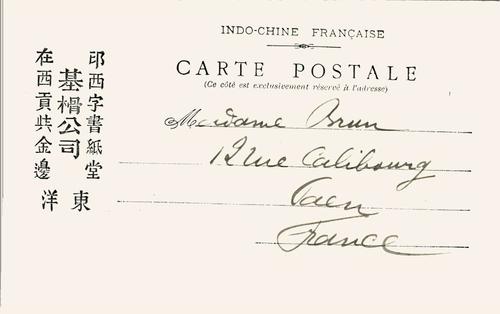 INDO-CHINE FRANÇAISE
CARTE POSTALE
(Ce côté est exclusivement réservé à l'adresse)
Madame Brun
12 rue Calibourg
Caen
France
印西字書紙堂
公司
在西貢 金邊
東洋